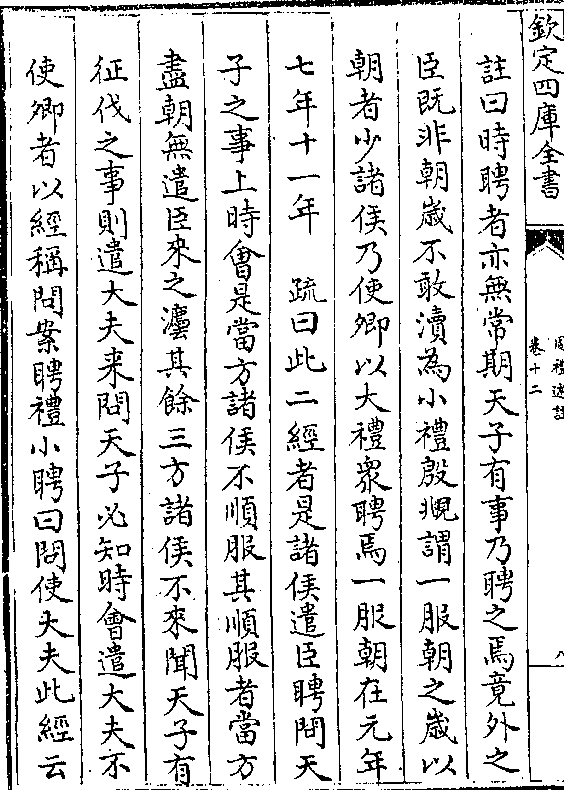 欽定四庫全書
周禮述註
卷十二
八
註曰時聘者亦無常期天子有事乃聘之焉竟外之
臣既非朝歲不敢瀆為小禮殷覜謂一服朝之歲以
朝者少諸侯乃使卿以大禮衆聘焉一服朝在元年
七年十一年 疏曰此二經者是諸侯遣臣聘問天
子之事上時會是當方諸侯不順服其順服者當方
盡朝無遣臣來之灋其餘三方諸侯不來聞天子有
征伐之事則遣大夫来問天子必知時會遣大夫不
使卿者以經稱問案聘禮小聘曰問使大夫此經云